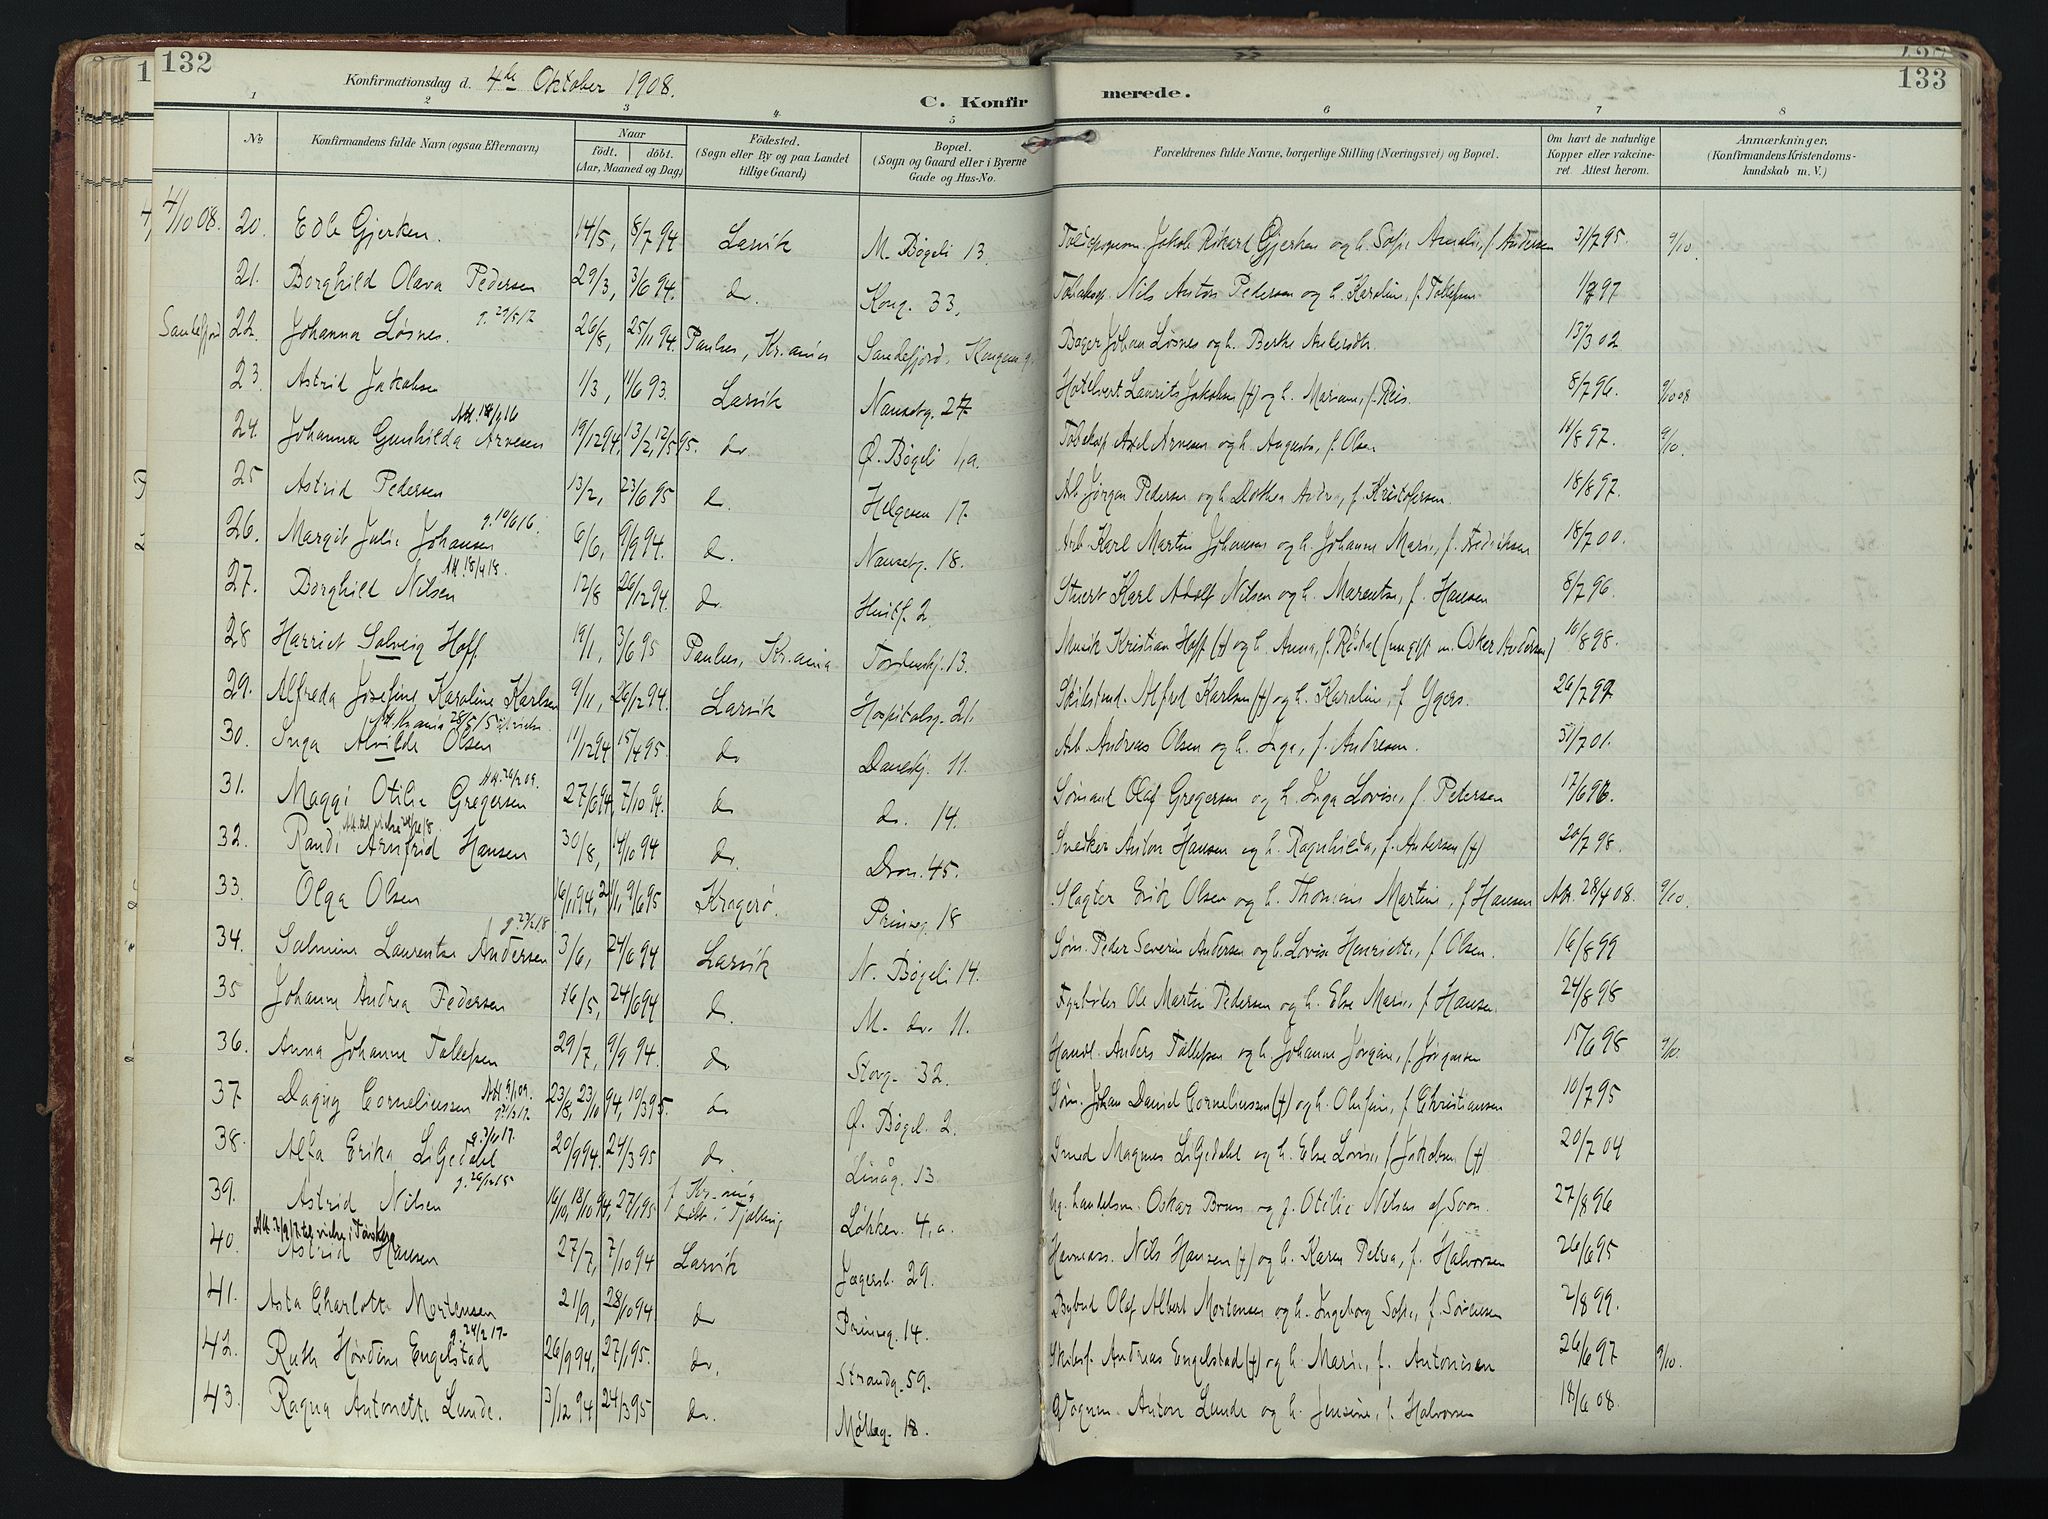 132
Konfirmationsdag d. 4de Oktober 1908.
C. Konfir
merede.
133
1 2 3 4 5 6 7 8
No
Konfirmandens fulde Navn (ogsaa Efternavn)
Naar
födt. döbt.
(Aar, Maaned og Dag)
Födested.
(Sogn eller By og paa Landet
tillige Gaard)
Bopæl.
(Sogn og Gaard eller i Byerne
Gade og Hus-No.
Forældrenes fulde Navne, borgerlige Stilling (Næringsvei) og Bopæl.
Om havt de naturlige
Kopper eller vakcine-
ret. Attest herom.
Anmærkninger.
(Konfirmandens Kristendoms-
kundskab m. V.)
4/10 08. 20. Edle Gjerken. 14/5, 8/7 94. Larvik M. Bøgeli 13. Jakob Rikard Gjerken og h. Sofie Amalie, f. Andersen 31/7 95. 9/10.
21. Borghild Olava Pedersen 29/3, 3/6 94. do. Kong. 33. Nils Anton Pedersen og h. Karoline, f. Tollefsen 97
g. 29/5 17
Sandefjord 22. Johanna Løsnes. 26/8, 25/11 94. Paulus, Kr.ania Sandefjord, Kongens g. Bager Johan Løsnes og h. Berthe Andersdtr. 13/3 02
23. Astrid Jakobsen 1/3, 11/6 93. Larvik Nansetg. 27 Hotelvert Laurits Jakobsen (†) og h. Mariane, f. Reis. 8/7 96. 9/10 08
24. Johanna Gunhilda Arvesen 19/12 94, 13/2, 12/5 95. do. Ø. Bøgeli 1,a. Axel Arvesen og h. Augusta, f. Olsen 18/8 97. 9/10.
25 Astrid Pedersen 13/2, 23/6 95 do. Helgesen 17. Arb. Jørgen Pedersen og h. Dothea Andrea, f. Kristofersen. 18/8 97.
g. 10/6 16.
26. Margit Julie Johansen 6/6, 9/9 94. do. Nansetg. 18. Arb. Karl Martin Johansen og h. Johanne Marie, f. Fredriksen 18/7 00.
Att. 18/4 18.
27. Borghild Nilsen 12/8 26/12 94. do. Huitf. 2. Stuert Karl Adolf Nilsen og h. Marentse, f. Hansen 8/7 96.
28 Harriet Solveig Hoff. 19/1, 3/6 95 Paulus, Kr.ania Tordenskj. 13. Musik Kristian Hoff (†) og h. Anna, f. Røstad (omgift m. Osker Andersen) 10/8 98.
29. Alfreda Josefine Karoline Karlsen 9/11, 26/12 94. Larvik Hospitalsg. 21. Alfred Karlsen (†) og h. Karoline, f. Ygers. 26/7 97.
30. Inga Alvilde Olsen 11/12 94, 15/4 95. do Danebg. 11. Arb. Andreas Olsen og h. Inga, f. Andresen. 31/7 01.
Att. 20/2 09.
31. Maggi Otilie Gregersen 27/6 94, 7/10 94. do do. 14. Sømand Olaf Gregersen og h. Inga Lovise, f. Petersen 17/6 96.
32. Randi Arnfrid Hansen 30/8, 14/10 94 do. Dron. 45. Snedker Anton Hansen og h. Ragnhilda, f. Andersen (†) 20/7 98.
33. Olga Olsen 9/6 95 Kragerø. Prinsg. 18 Slagter Erik Olsen og h. Thomine Martine, f. Hansen Att. 28/4 08. 9/10.
g. 23/2 18
34. Salmine Laurentse Andersen 3/6, 24/6 94 Larvik N. Bøgeli 14. Søm. Peder Severin Andersen og h. Lovise Henriette, f. Olsen. 16/8 99
35 Johanne Andrea Pedersen 16/5, 24/6 94 do. M. do. 11. Fyrbøter Ole Martin Pedersen og h. Else Marie, f. Hansen. 24/8 98
36. Anna Johanne Tollefsen 29/7, 9/9 94. do Storg. 32. Handl. Anders Tollefsen og h. Johanne Jørgine, f. Jørgensen 17/6 98 9/10.
Att. 9/1 09.
37 Dagny Corneliussen 23/8, 23/10 94, 10/3 95. do Ø. Bøgel. 2. Søm. Johan Daniel Corneliussen (†) og h. Olufine, f. Christiansen 10/7 95
g. 3/11 17.
38. Alfa Erika Liljedahl 20/9 94. 24/3 95 do. Linåg. 13. Smed Magnus Liljedahl og h. Else Lovise, f. Jakobsen (†) 20/7 04
g. 26/12 15
39. Astrid Nilsen 16/10, 18/10 94, 27/1 95 døbt i Tjølling Løkken 4,a. Oskar Brun og p. Otilie Nilsen af Soon. 27/8 96
40. Astrid Hansen 27/7, 7/10 94 Larvik Jægersb. 29. Nils Hansen (†) og h. Karen Petrea, f. Halvorsen 26/6 95
41. Asta Charlotte Mortensen 21/9, 28/10 94. do Prinseg. 14. Bybud Olaf Albert Mortensen og h. Ingeborg Sofie, f. Sørensen 2/8 99.
g. 24/2 17-
42. Ruth Hørdine Engelstad 26/9 94, 27/1 95. do. Strandg. 59. Andreas Engelstad (†) og h. Marie, f. Antonisen 26/6 97 9/10.
43. Ragna Antonette Lunde. 3/12 94 24/3 95 do. Mølleg. 18. Vognm. Anton Lunde og h. Jensine, f. Halvorsen 18/6 08.